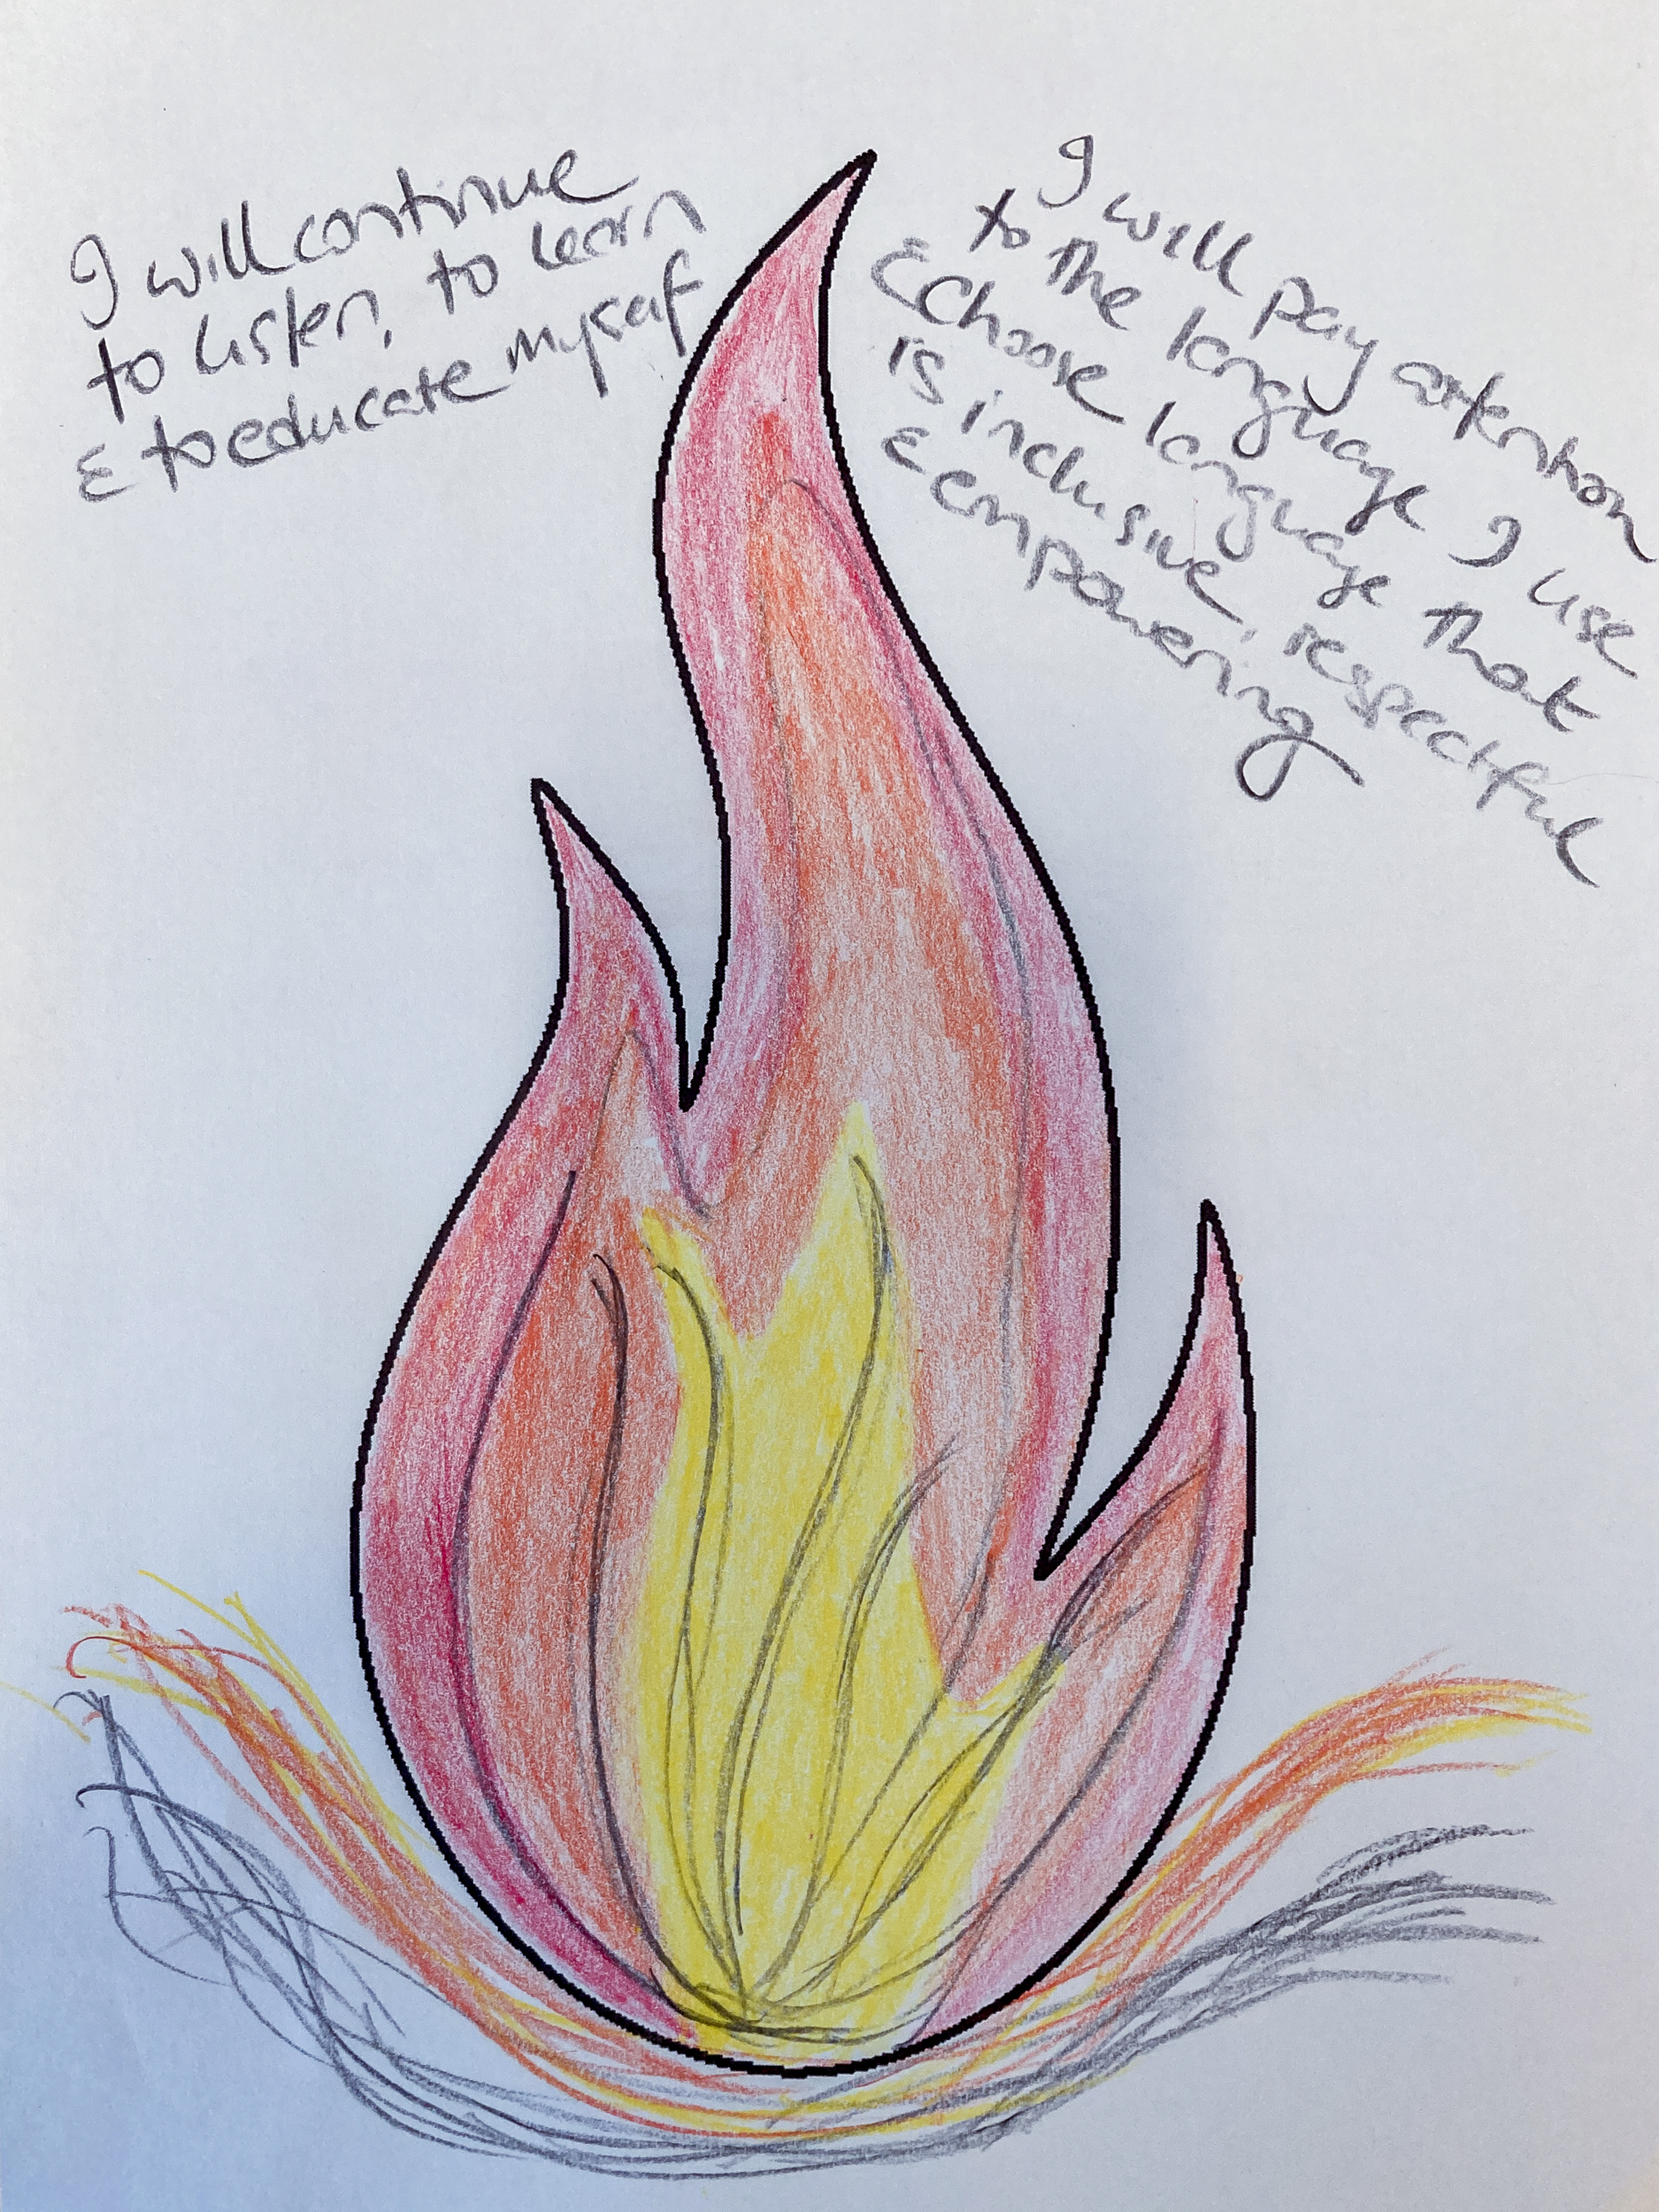 I will continue
to listen, to learn
& to educate myself
I will pay attention
to the language I use
& choose language that
is inclusive, respectful
& empowering